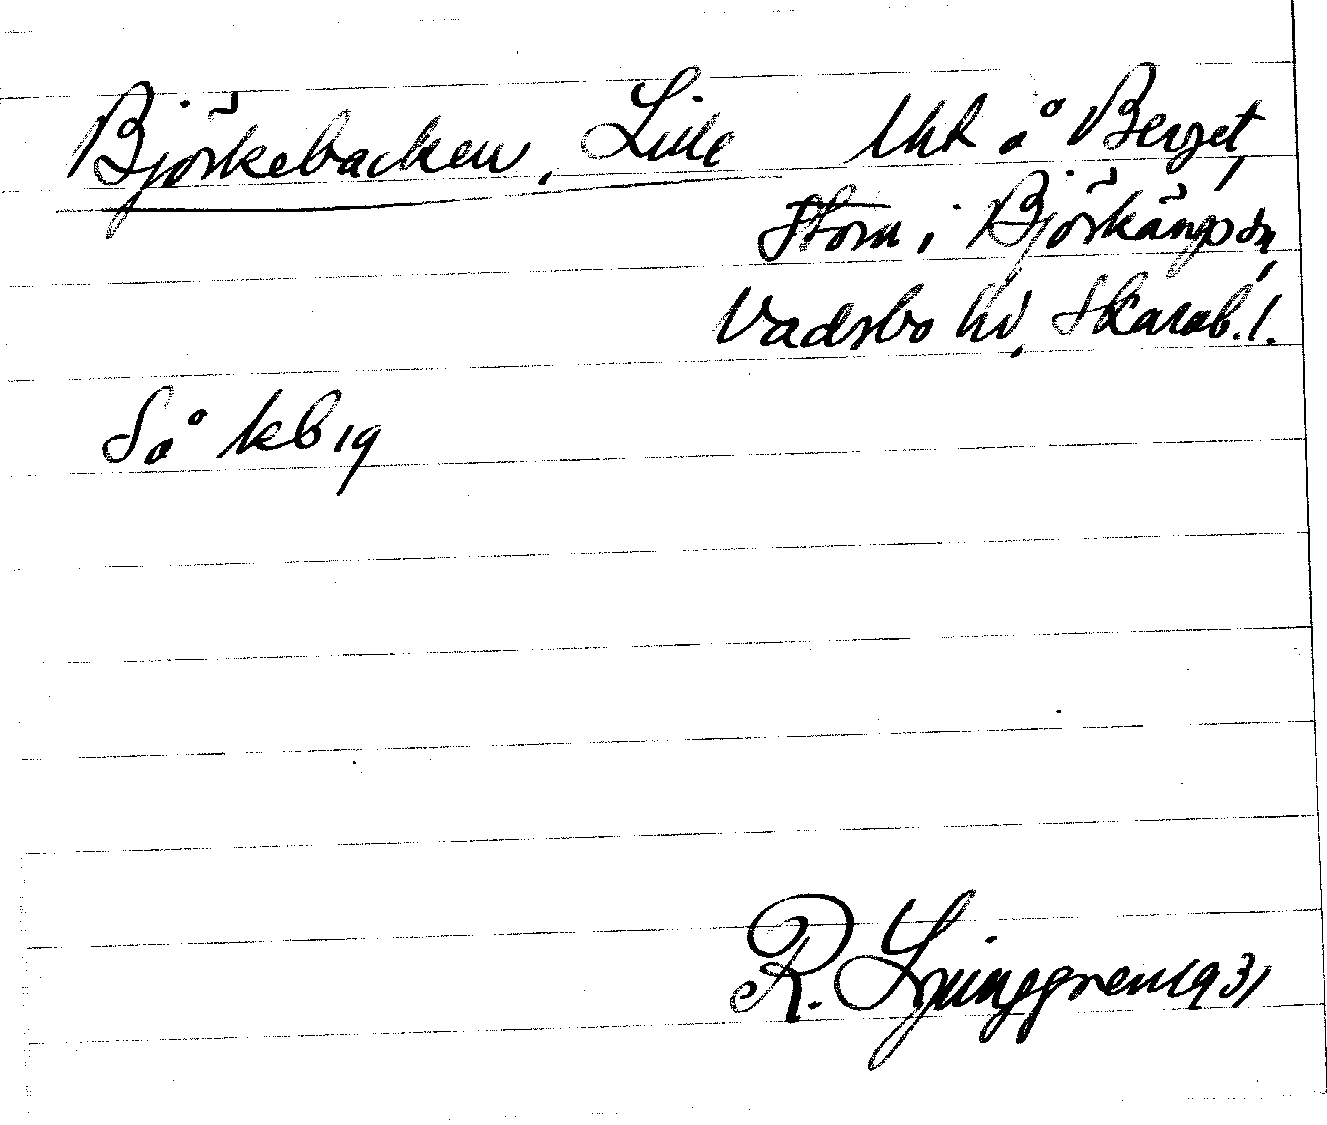 Björkebacken, Lille Uht å Berget,
Stora i Björkängs sn,
Vadsbo hd, Skarab. l.
Så kb 19
R. Ljunggren 1931